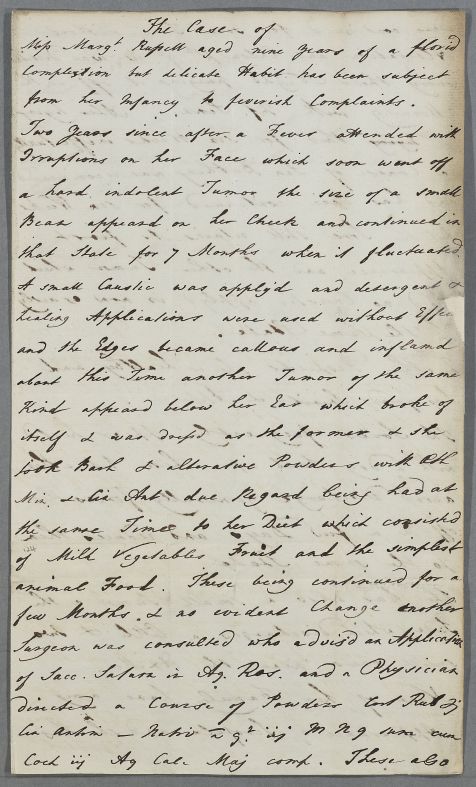 The Case of
Miss Margt. Russell aged nine years of a florid
Complexion but delicate Habit has been subject
from her Infancy to feverish Complaints.
Two Years since after a Fever attended with
Irruptions on her Face which soon went off
a hard indolent Tumor the size of a small
Bean appeard on her Cheek and continued in
that State for 7 Months when it fluctuated
A small Caustic was applyd and detergent &
healing Applications were used without Effec
and the Edges became callous and inflamd
about this Time another Tumor of the same
Kind appeard below her Ear which broke of
itself & was dressd as the former & she
took Bark & alterative Powders with Eth
Min & Cin Ant due Regard being had at
the same Time to her Diet which consisted
of Milk Vegetables Fruit and the simplest
animal Food. These being continued for a
few Months & no evident Change another
Surgeon was consulted who advisd an Application
of Sacc. Saturn in Aq. Ros. and a Physician
directed a Course of Powders Cort Rub ʒj
Cin Antim — Nativ a gr iij M N 9 sum cum
Coch iij Aq Calc Maj comp. These also